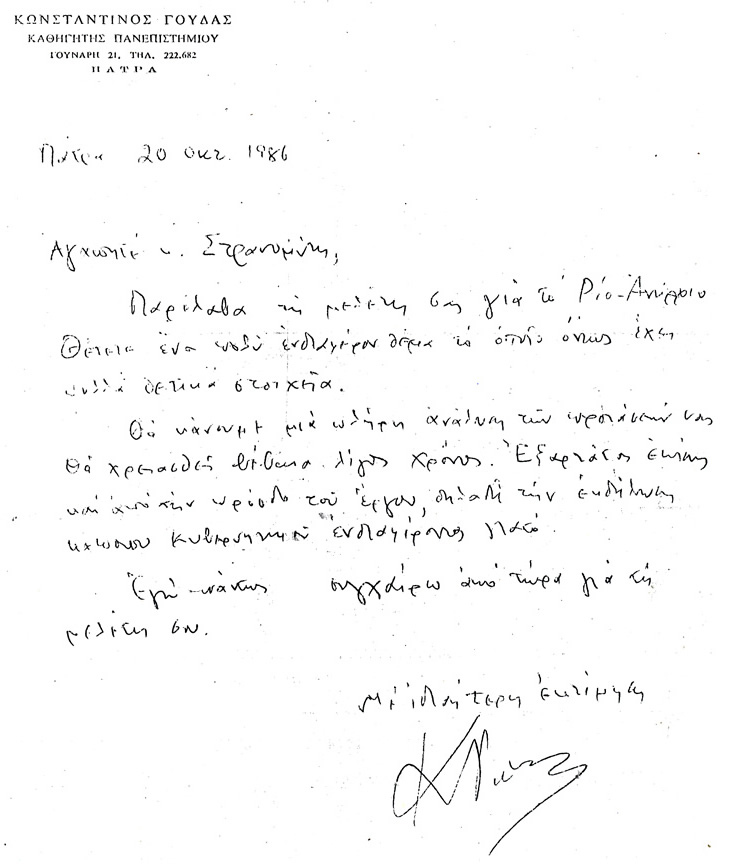 ΚΩΝΣΤΑΝΤΙΝΟΣ ΓΟΥΔΑΣ
ΚΑΘΗΓΗΤΗΣ ΠΑΝΕΠΙΣΤΗΜΙΟΥ
ΓΟΥΝΑΡΗ 21, ΤΗΛ. 222.682
ΠΑΤΡΑ
Πάτρα 20 Οκτ. 1986
Αγαπητέ κ.
Παρέλαβα τη μελέτη σας γιά το Ρίο-Αντίρριο
Θέτετε ένα πολύ ενδιαφέρον θέμα το οποίο όπως έχει
πολλά θετικά στοιχεία.
Θά κάνουμε μιά πλήρη ανάλυση τών προτάσεών σας
Θά χρειασθεί βέβαια λίγος χρόνος. Εξαρτάται επίσης
και από την πρόοδο του έργου, δηλαδή την εκδήλωση
κάποιου Κυβερνητικού ενδιαφέροντος γιαυτό.
Εγώ πάντως συγχαίρω από τώρα γιά τη
μελέτη σου.
Μέ ιδιαίτερη εκτίμηση